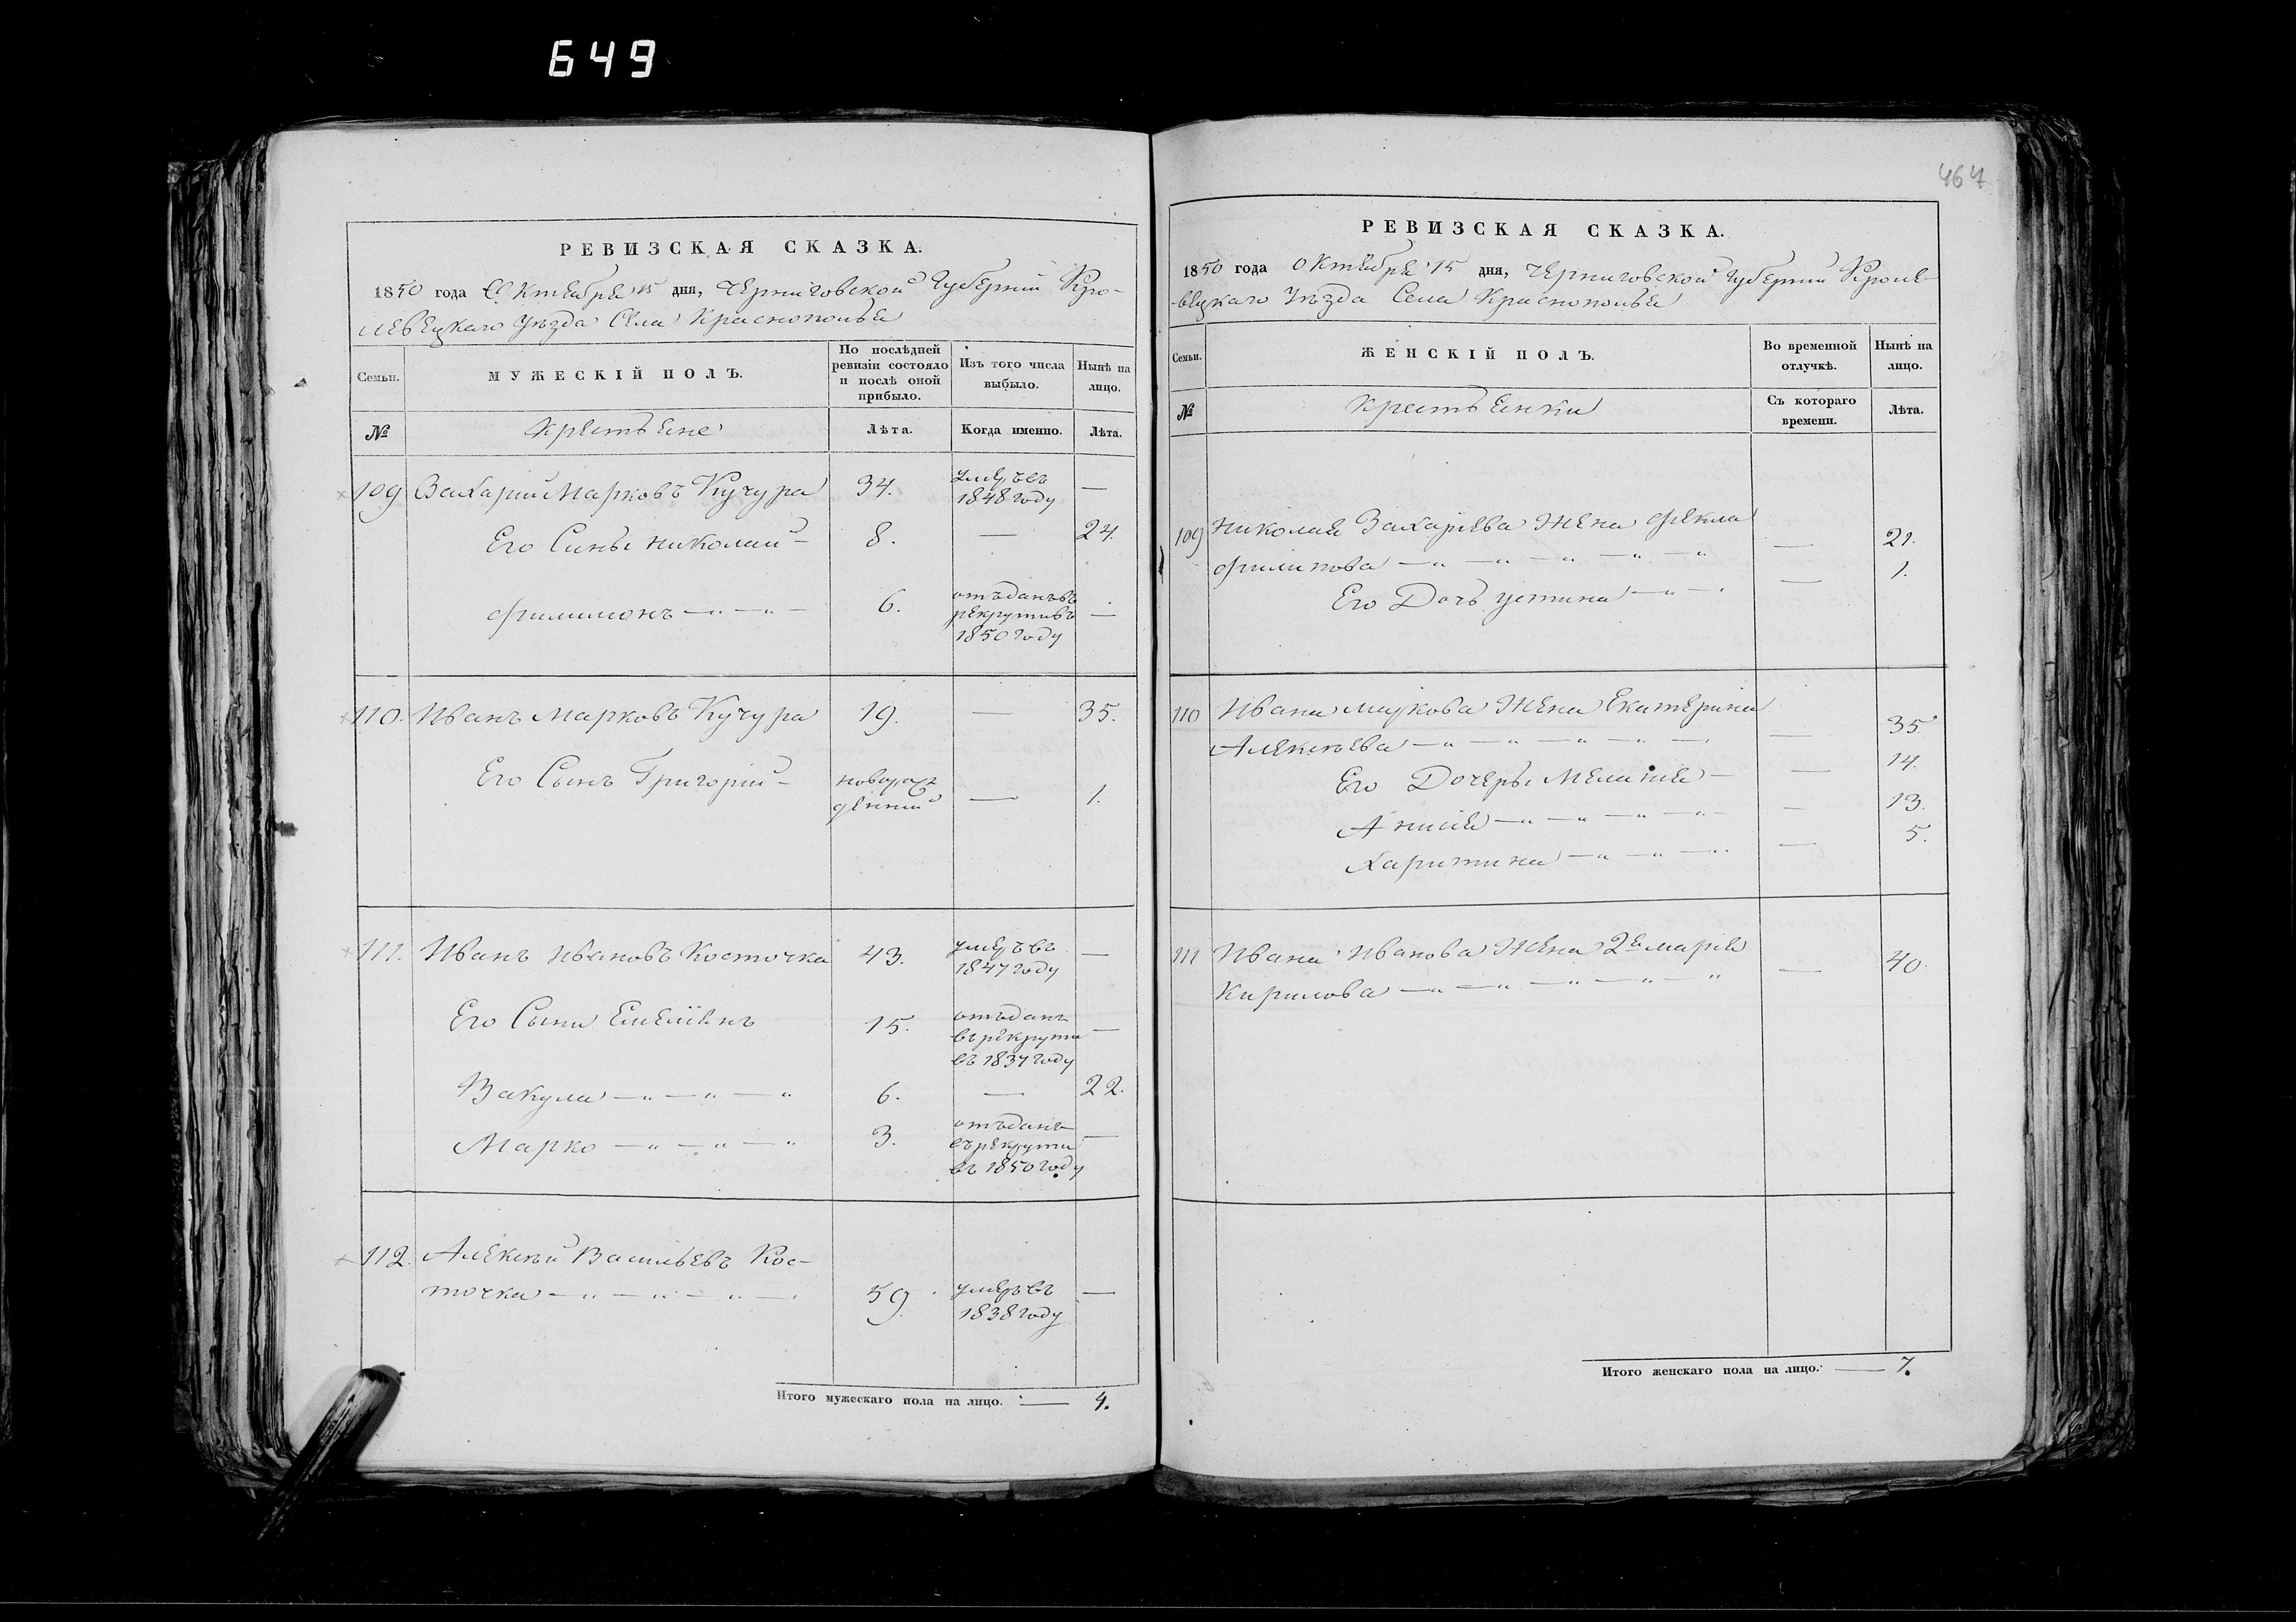 649
РЕВИЗСКАЯ СКАЗКА.
1850 года Октября 15 дня, Черниговской Губерніи Кро-
левецкаго Уѣзда Села Краснополья
Семьи.
МУЖЕСКІЙ ПОЛЪ.
По послѣдней ревизіи состояло и послѣ оной прибыло.
Изъ того числа выбыло.
Нынѣ на лицо.
№
Крестьяне
Лѣта.
Когда именно.
Лѣта.
109 Захарій Марковъ Кучура 34. умеръ въ —
1848 году
Его Сыны Николай — 8. — 24.
Филимонъ — „ — „ — 6. отъданъ въ —
рекруты въ
1850 году
110. Иванъ Марковъ Кучура 19. — 35.
Его Сынъ Григорій — новорож — 1.
денный
111. Иванъ Ивановъ Косточка 43. умеръ въ —
1847 году
Его Сыни Емеліянъ 15. отъданъ —
въ рекрути
въ 1837 году
Вакула — „ — „ — „ 6. — 22.
Марко — „ — „ — „ 3. отъданъ —
въ рекрути
въ 1850 году
112. Алексѣй Васильевъ Кос-
точка — „ — „ — „ — 59. умеръ въ —
1838 году
Итого мужескаго пола на лицо. — 4.
467
РЕВИЗСКАЯ СКАЗКА.
1850 года Октября 15 дня, Черниговской Губерніи Кроле-
вецкаго Уѣзда Села Краснополья
Семьи.
ЖЕНСКІЙ ПОЛЪ.
Во временной отлучкѣ.
Нынѣ на лицо.
№
Крестьянки
Съ котораго времени.
Лѣта.
109 Николая Захарьева Жена Фекла
Филипова — „ — „ — „ — „ — „ — 21.
Его Дочь Устина — „ — — 1.
110 Ивана Маркова Жена Екатерина
Алексѣева — „ — „ — „ — „ — — 35.
Его Дочеры Меланія — — 14.
Анисія — „ — „ — „ — „ — — 13.
Харитина — „ — „ — „ — 5.
111 Ивана Иванова Жена 2я Марія
Кирилова — „ — „ — „ — „ — „ — 40.
Итого женскаго пола на лицо. — 7.